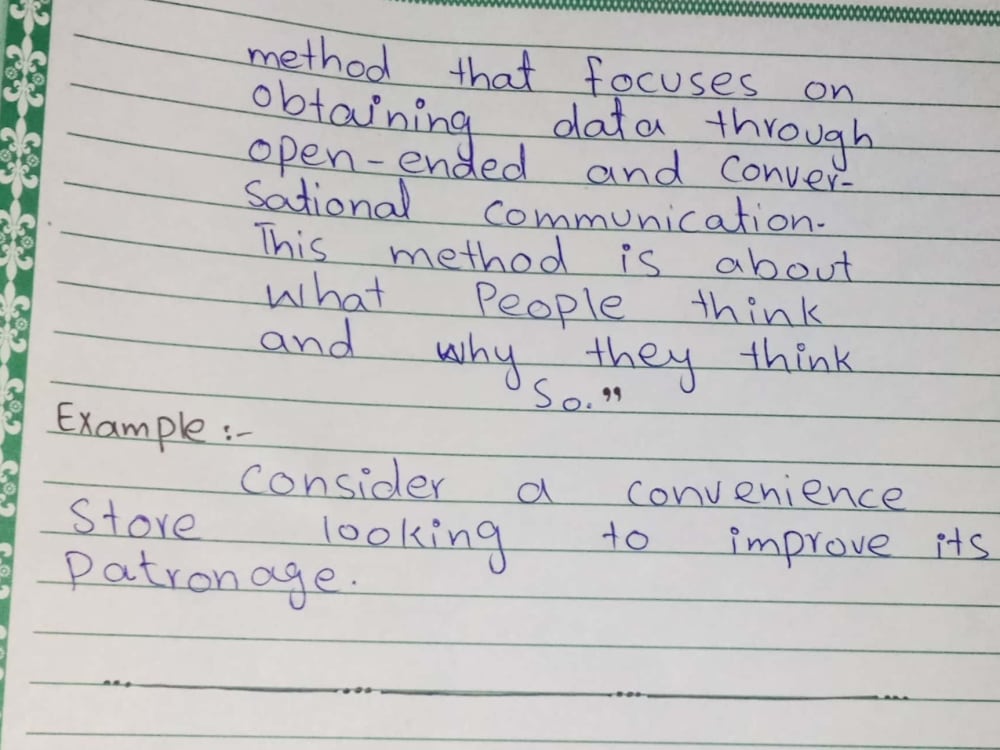 method that focuses on
obtaining data through
open-ended and conver-
sational communication.
This method is about
what People think
and why they think
So."
Example :-
Consider a convenience
Store looking to improve its
Patronage.